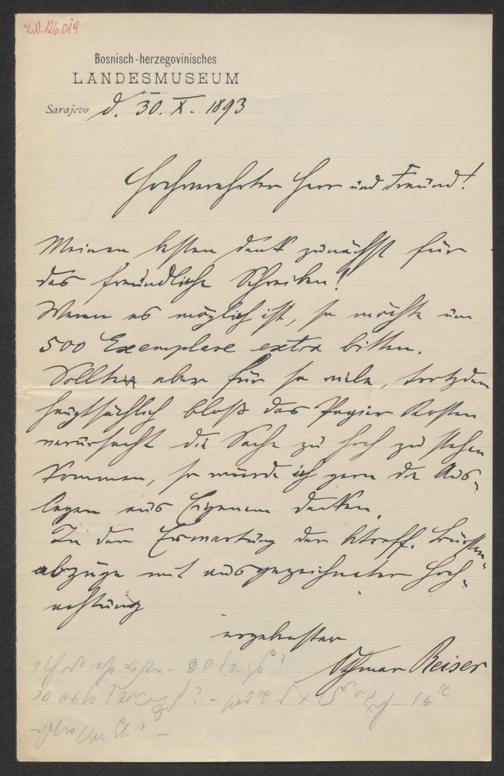 I.N. 126.019
Bosnisch-herzegovinisches
LANDESMUSEUM
Sarajevo d. 30. X. 1893
Hochverehrter Herr und Freund!
Meinen besten Dank zunächst für
das freundliche Schreiben!
Wenn es möglich ist, so möchte um
500 Exemplare extra bitten.
Sollte aber für so viele, trotzdem
hauptsächlich bloß das Papier Kosten
verursacht die Sache zu hoch zu stehen
kommen, so würde ich gern die Aus-
lagen aus Eigenem decken.
In der Erwartung der betreff. Bürsten-
abzüge mit ausgezeichneter Hoch-
achtung
ergebenster
Othmar Reiser